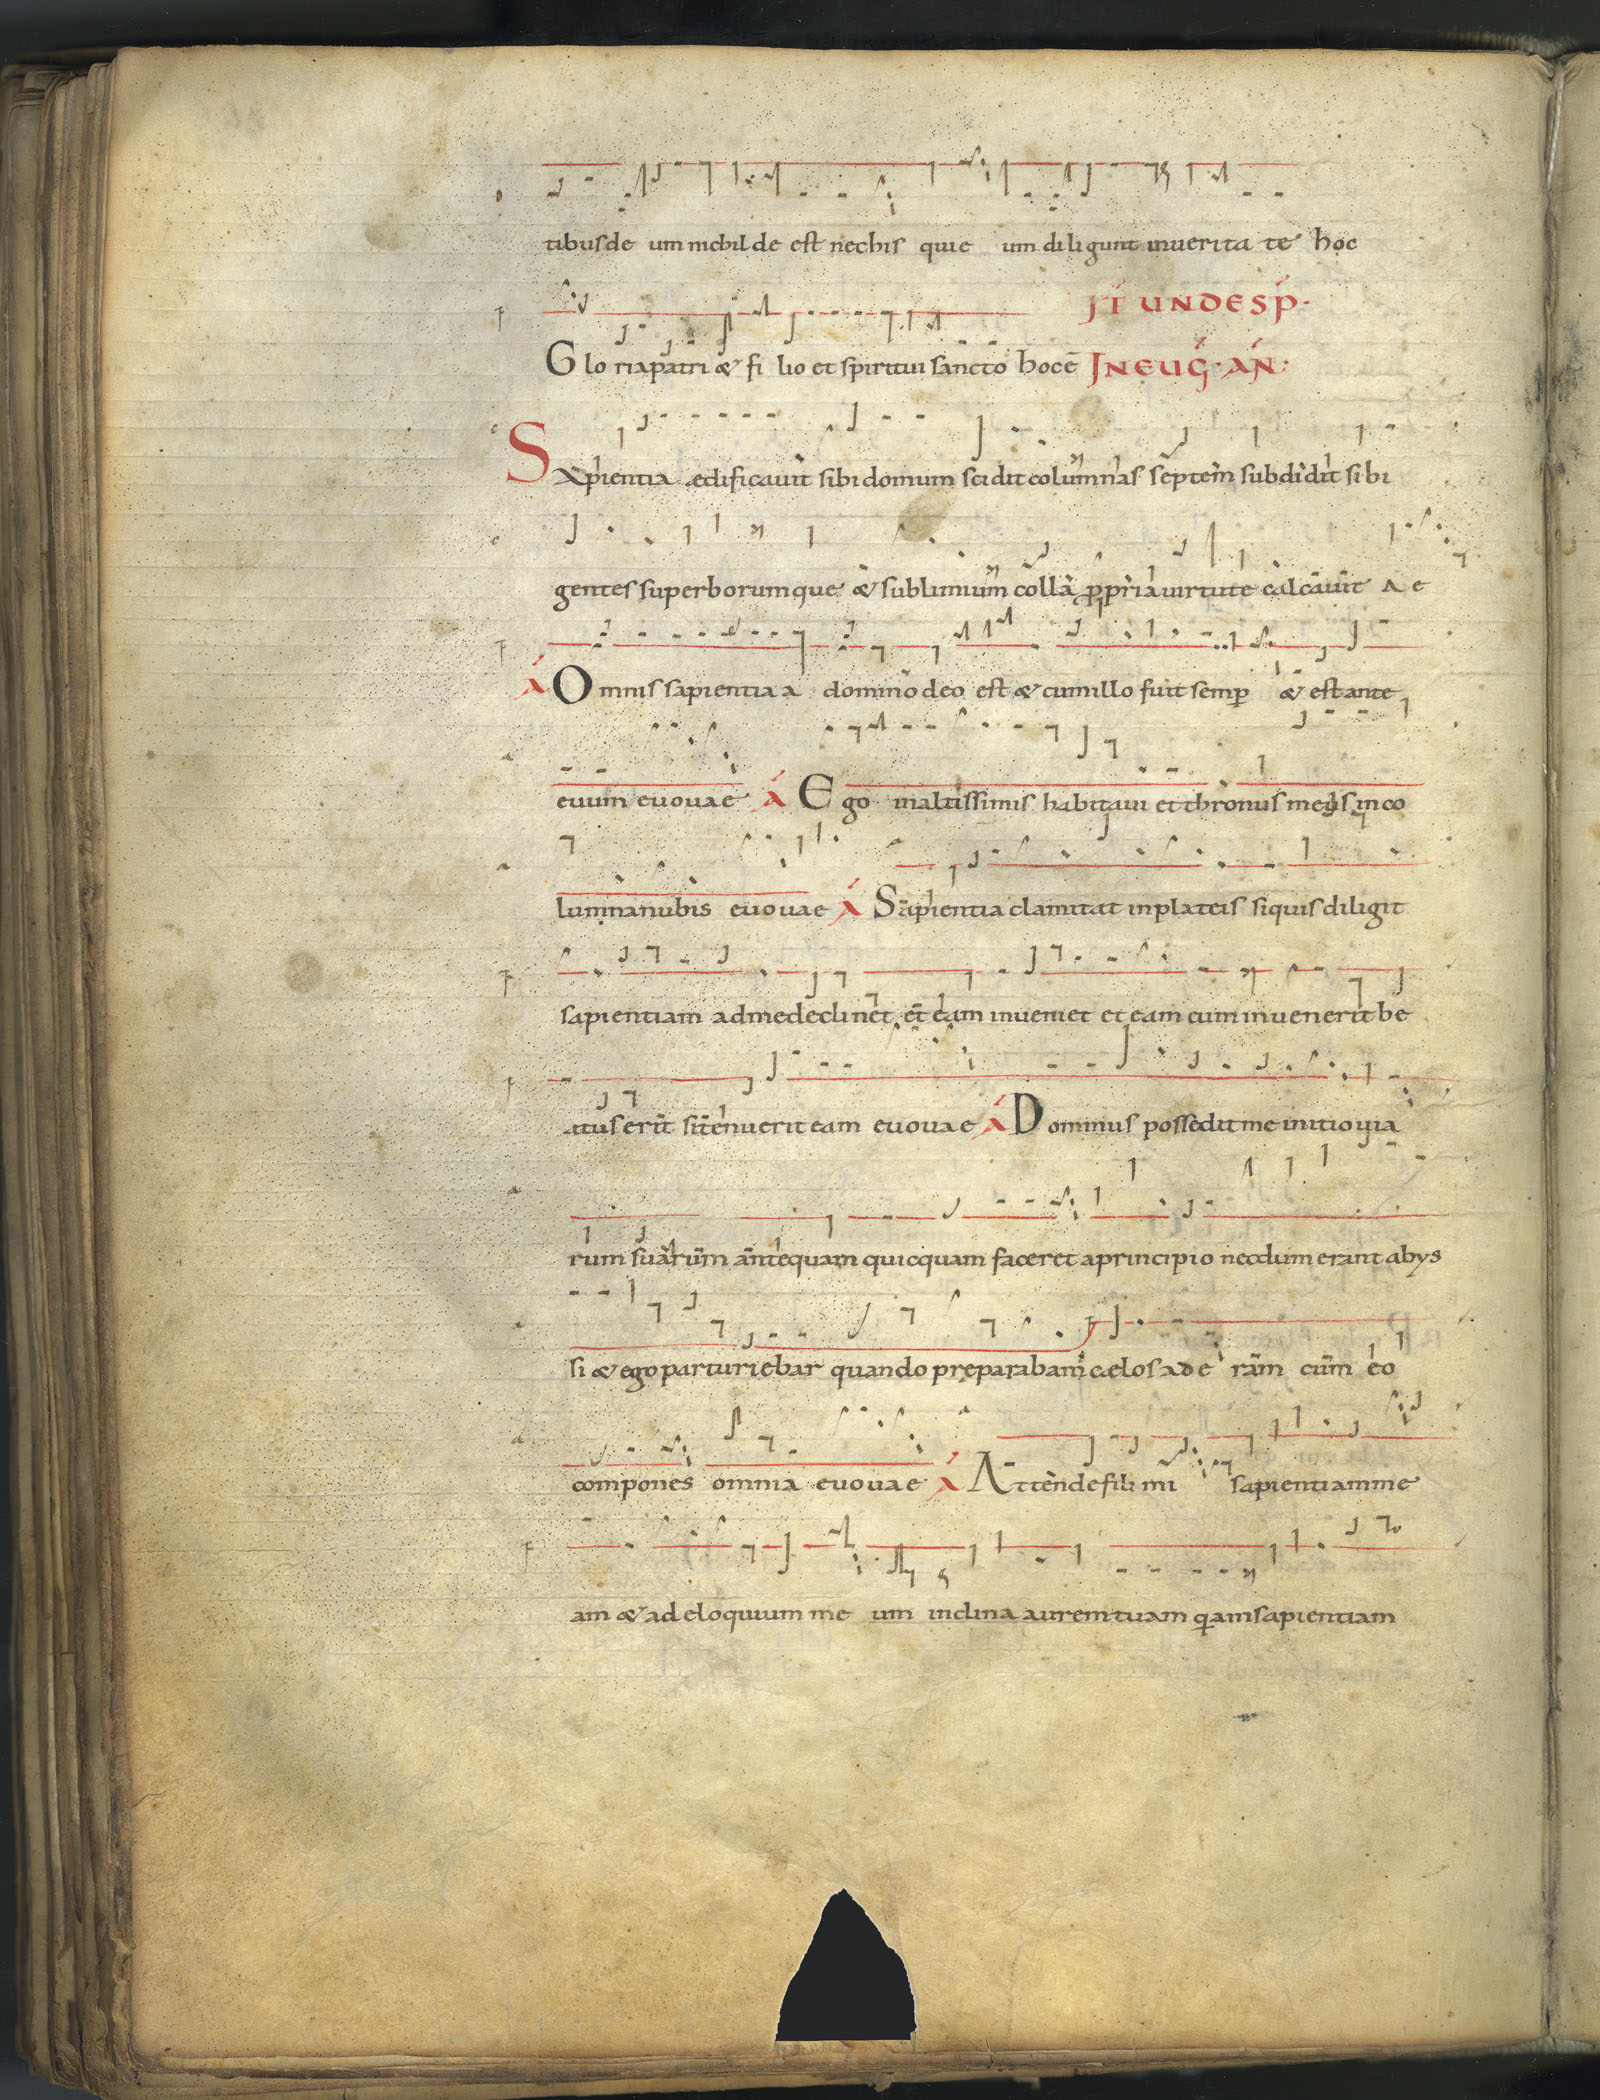 tibus de um nichil de est nechis quie um diligunt in uerita te hoc
IT UN DE SP̄.
Glo ria patri & fi lio et spiritui sancto hoc ē IN EUG̃. AÑ:
Sapientia ædificauit sibi domum scidit columnas septem subdidit sibi
gentes superborumque & sublimium colla propria uirtute calcauit A e
A Omnis sapientia a domino deo est & cum illo fuit semp & est ante
euum euouae A Ego in altissimis habitaui et thronus meus in co
lumna nubis euouae A Sapientia clamitat in plateis siquis diligit
sapientiam ad me declinet et eam inueniet et eam cum inuenerit be
atus erit si tenuerit eam euouae A Dominus possedit me initio uia
rum suarum antequam quicquam faceret a principio necdum erant abys
si & ego parturiebar quando pręparabam cælos ad e ram cum eo
compones omnia euouae A Attende fili mi sapientiam me
am & ad eloquium me um inclina aurem tuam q̄am sapientiam